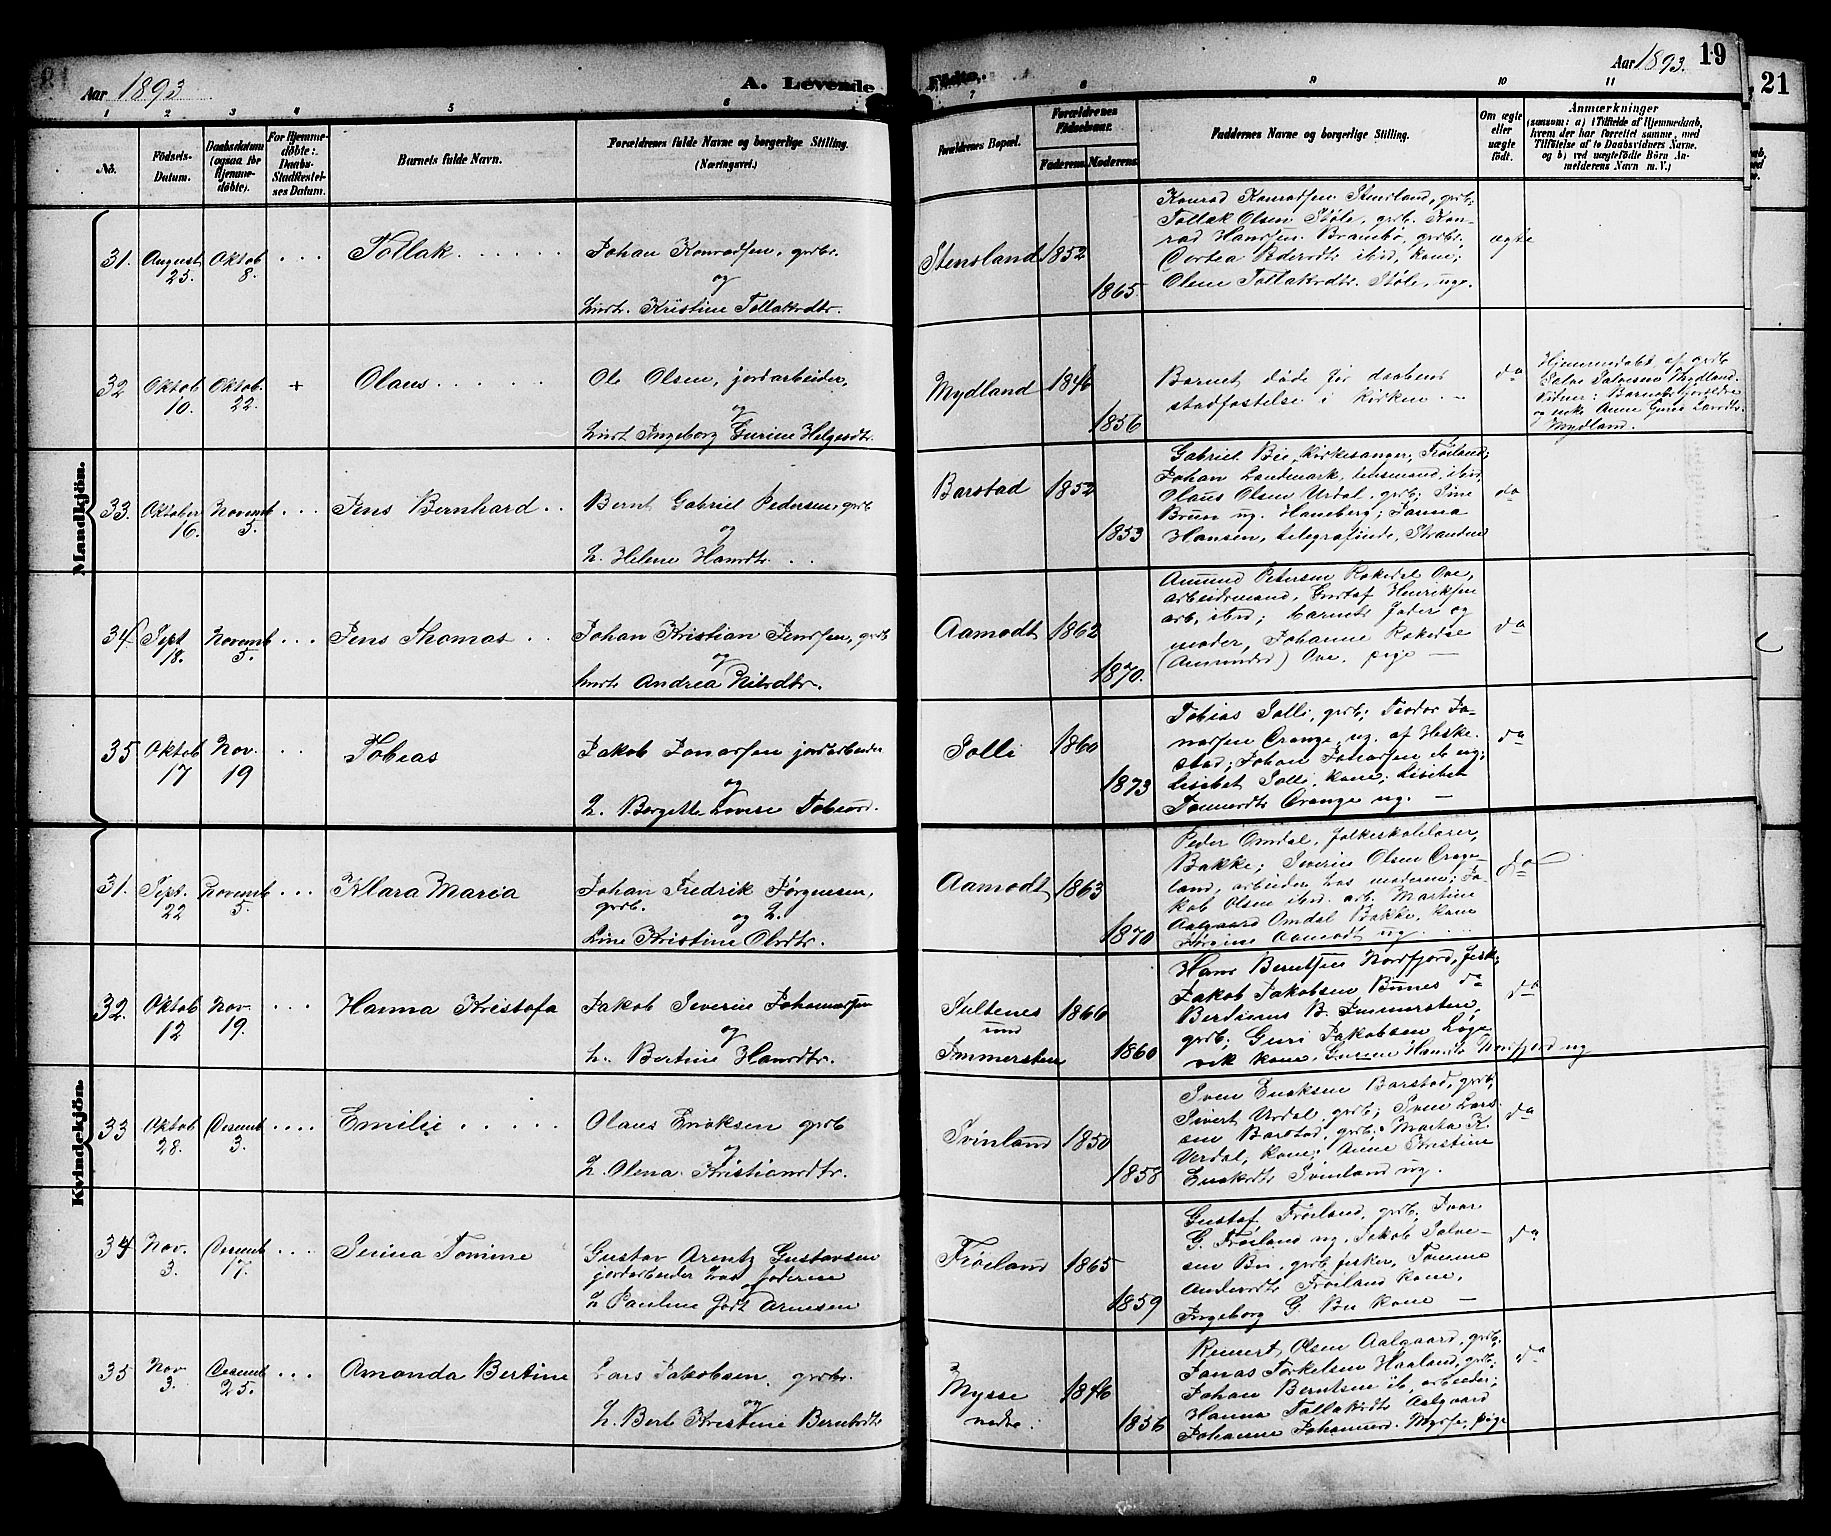 Aar 1893
A. Levende
Fødte.
Aar 1893. 19
21
1 2 3 4 5 6 7 8 9 10 11
No.
Fødsels-
Datum.
Daabsdatum
(ogsaa for
Hjemme-
døbte).
For Hjemme-
døbte:
Daabs-
Stadfæstel-
ses Datum.
Barnets fulde Navn.
Forældrenes fulde Navne og borgerlige Stilling.
(Næringsvei.)
Forældrenes Bopæl.
Forældrenes
Fødselsaar.
Faderens. Moderens.
Faddernes Navne og borgerlige Stilling.
Om ægte
eller
uægte
født.
Anmærkninger
(saasom: a) i Tilfælde af Hjemmedaab,
hvem der har forrettet samme, med
Tilføielse af to Daabsvidners Navne.
og b) ved uægtefødte Børn An-
melderens Navn m. V.)
Mandkjön.
31. August 25. Oktob 8. . . . Tollak . . . . . .
Johan Konradsen, grdbr.
og
Hustr. Kristine Tollaksdtr.
Stensland 1852
1865.
Konrad Konradsen Stensland, grdb;
Tollak Olsen Støle, grdb. Kon-
rad Hansen Brambø, grdbr.
Dortea Pedersdtr ibid, kone;
Olene Tollaksdtr. Støle, uge.
ægte
32 Oktob 10. Oktob. 22. + Olaus . . . . .
Ole Olsen, jordarbeider,
og
Hustr Ingeborg Gurine Helgesdtr.
Mydland 1846
1856
Barnet døde før daabens
stadfæstelse i kirken. —
do
Hjemmedøbt af grdb
Salve Salvesen Mydland.
Vidner: Barnets forældre
og enke Anne Gurie Larsdtr.
Mydland.
33. Oktober 16. Novemb 5. . . . Jens Bernhard . .
Bernt Gabriel Pedersen, grdb
og
H. Helene Hansdtr. . .
Barstad 1852
1853
Gabriel Bie, kirkesanger, Frøiland;
Johan Landmark, lensmand, ibid,
Olaus Olsen Urdal, grdb; Sine
Bruun ug. Haneberg; Janna
Hansen, telegrafinde, Stranden
do
34 Sept 18. Novemb 5. . . . Jens Thomas . .
Johan Kristian Jensen, grdb
og
Hustr Andrea Nilsdtr.
Aamodt 1862
1870.
Amund Petersen Rekedal Ove,
arbeidsmand, Gustaf Henriksen
arb, ibid; barnets fader og
moder, Johanne
(Amundsd) Ove. pige —
do
35 Oktob 17 Nov. 19 . . Tobias
Jakob Jonassen jordarbeider
og
H. Bergette Lovise Tobiasd.
Solli 1860
1873
Tobias Solli, grdb; Teodor Jo-
nassen Orange, ug. af Heske-
stad; Johan Jonassen ib ug;
Lisebet Solli, kone; Lisebet
Orange ug. —
do
Kvindekjön.
31. Sept. 22 Novemb 5. . . . Klara Maria
Johan Fredrik Jørgensen,
grdb. og H.
Line Kristine Olsdtr.
Aamodt 1863
1870
Peder Omdal, folkeskolelærer,
Bakke; Severin Olsen Ørge-
land, arbeider, hos moderen; Ja-
kob Olsen ibid. arb. Martine
Aalgaard Omdal Bakke, kone
Jørgine Aamodt ug. . . .
do
32. Oktob 12 Nov. 19. . . . Hanna Kristofa
Jakob Severin Johannessen
og
H. Bertine Hansdtr.
Sultenes
und
Immersten
1866
1860
Hans Berntsen Nordfjord, fisk;
Jakob Jakobsen Bunes do
Bertinius B. Immersten,
grdb; Guri Jakobsen Løge-
vik kone, Hansdtr Nordfjord ug
do
33 Oktob 28. Desemb 3. . . . . Emilie . . . . .
Olaus Enoksen grdb
og
H. Olena Kristiansdtr.
Svinland 1850
1858
Sven Enoksen Barstad, grdb;
Sivert Urdal, grdb; Sven Lars-
sen Barstad, grdb; Marta K.
Urdal, kone; Anne Kristine
Enoksdtr Svinland ug.
do
34 Nov. 3. Desemb 17. . . . Serina Tomine
Gustav Arentz Gustavsen
jordarbeider hos faderen
H Pauline født Arnesen
Frøiland 1865
1859
Gustaf Frøiland, grdb; Ivar
G. Frøiland ug, Jakob Salve-
sen Bø, grdb fisker, Tomine
Andersdtr Frøiland kone,
Ingeborg G. Bø kone —
do
35 Nov 3. Desemb 25. . . . Amanda Bertine
Lars Jakobsen, grdbr.
og
H. Berte Kristine Berntsdtr
Mysse
nedre.
1846
1856
Reinert Olsen Aalgaard, grdb;
Jonas Torkelsen Haaland, grdb;
Johan Berntsen ib, arbeider;
Hanna Tollaksdtr Aalgaard
Johanne Johannesd. Mysse, pige
do